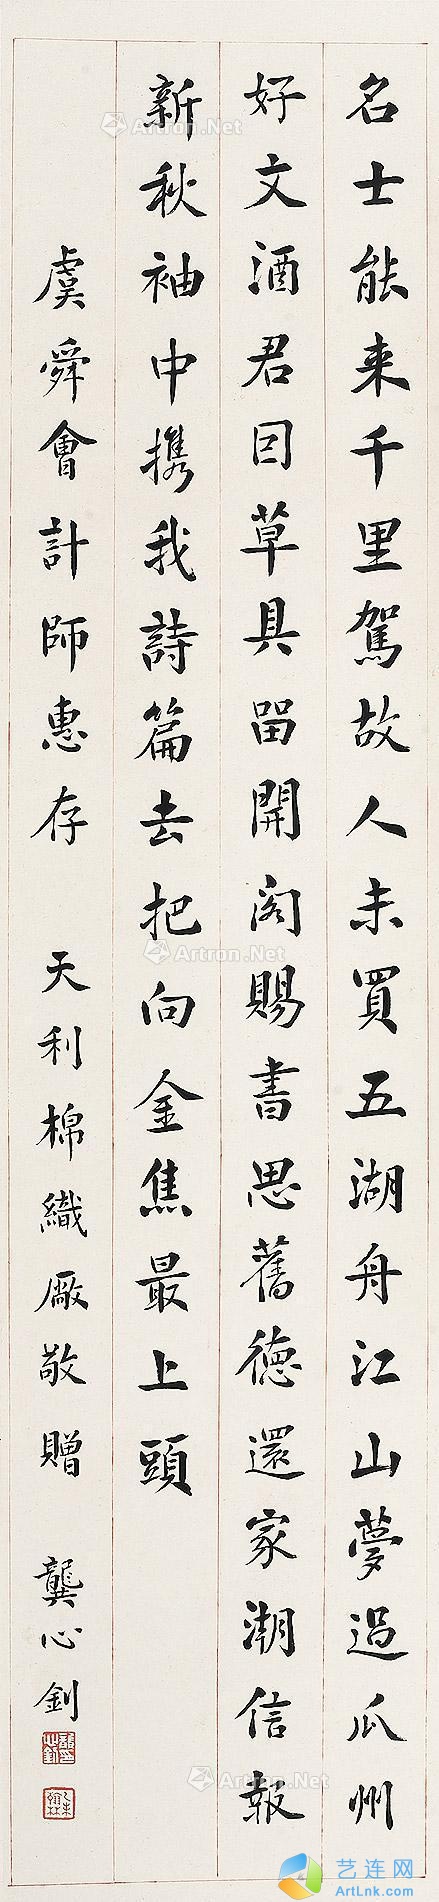 名士能来千里駕故人未買五湖舟江山夢過瓜州
好文酒君因草具留開閣賜書思舊德還家潮信報
新秋袖中携我詩篇去把向金焦最上頭
虞舜會計師惠存 天利棉織廠敬贈 龔心釗
Artron.Net
Artron.Net
Artron.Net
Artron.Net
艺连网
ArtLnk.com